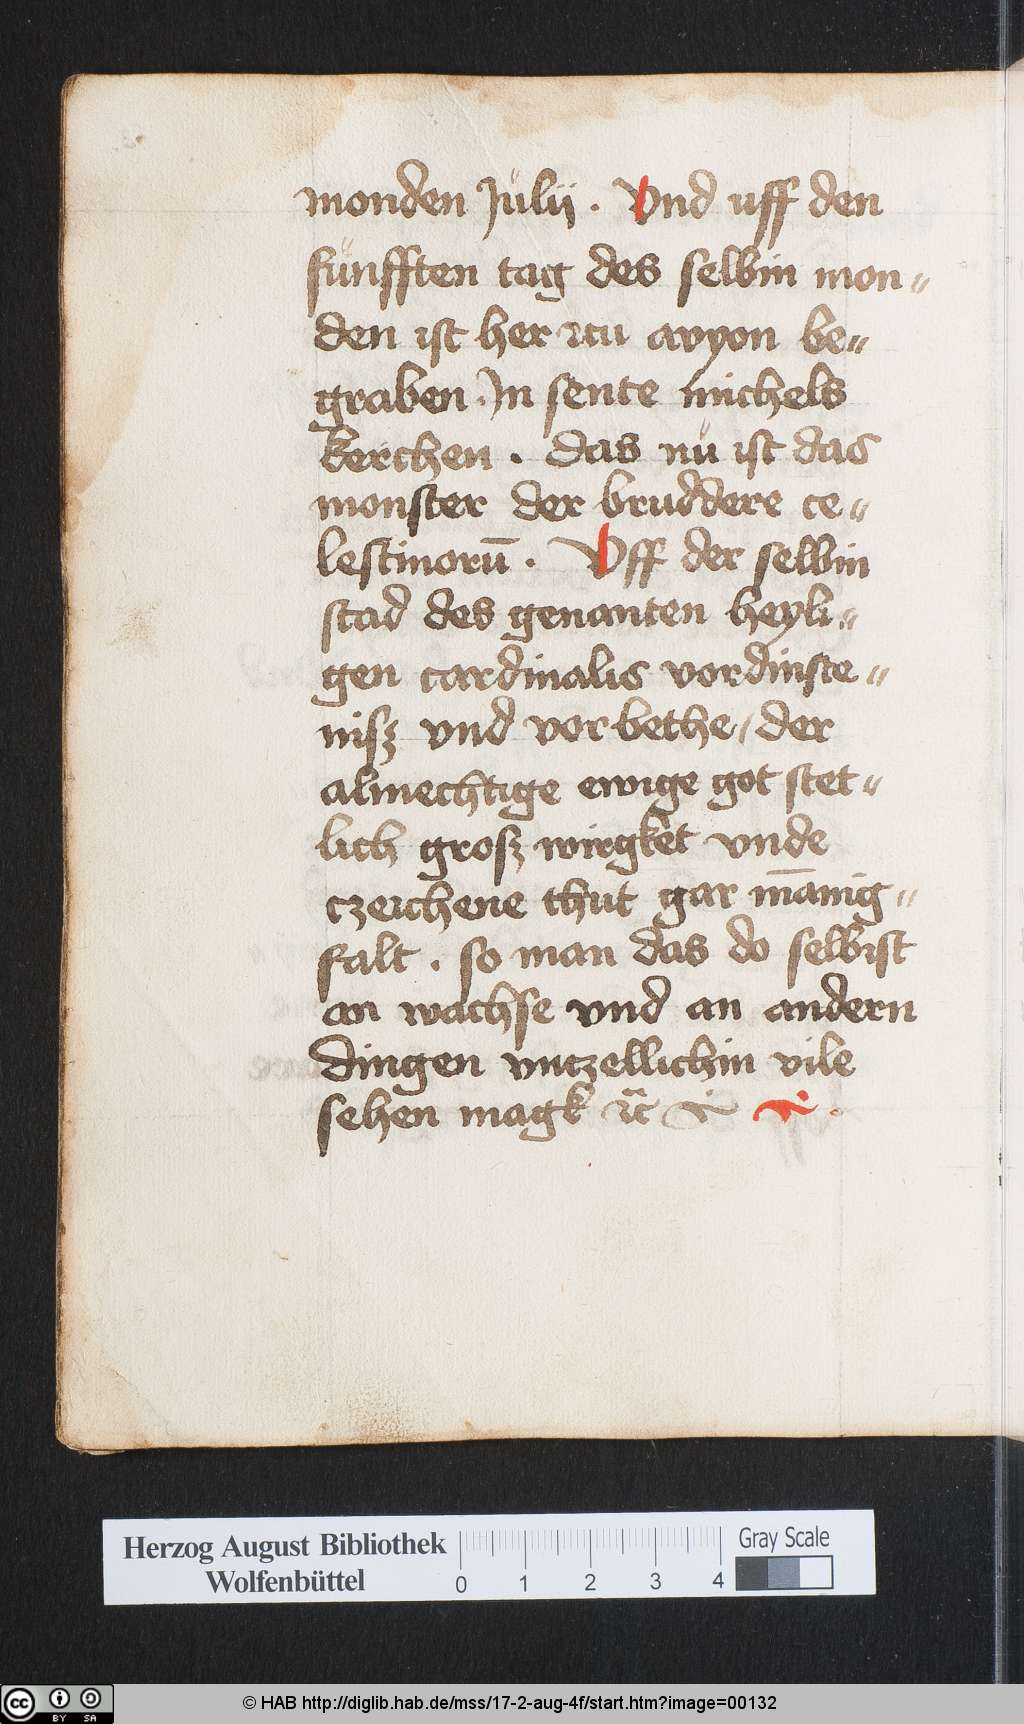 monden Jŭlij . Vnd uff den
fŭnfften tag des selbin mon〃
den ist her zcu avyon be〃
graben . In sente michels
kerchen . das nŭ ist das
monster der bruddere ce〃
lestinorū . Vff der selbin
stad des genanten heyli〃
gen cardinalis vordinste〃
nisz vnd vorbethe / der
almechtige ewige got stet〃
lich grosz wirgket vnde
czeichene thut gar mānig〃
falt . so man das do selbist
an wachse vnd an andern
dingen vntzellichin vile
sehen magk ꝛc̃
Herzog August Bibliothek
Wolfenbüttel
0 1 2 3 4
Gray Scale
cc BY SA
© HAB http://diglib.hab.de/mss/17-2-aug-4f/start.htm?image=00132